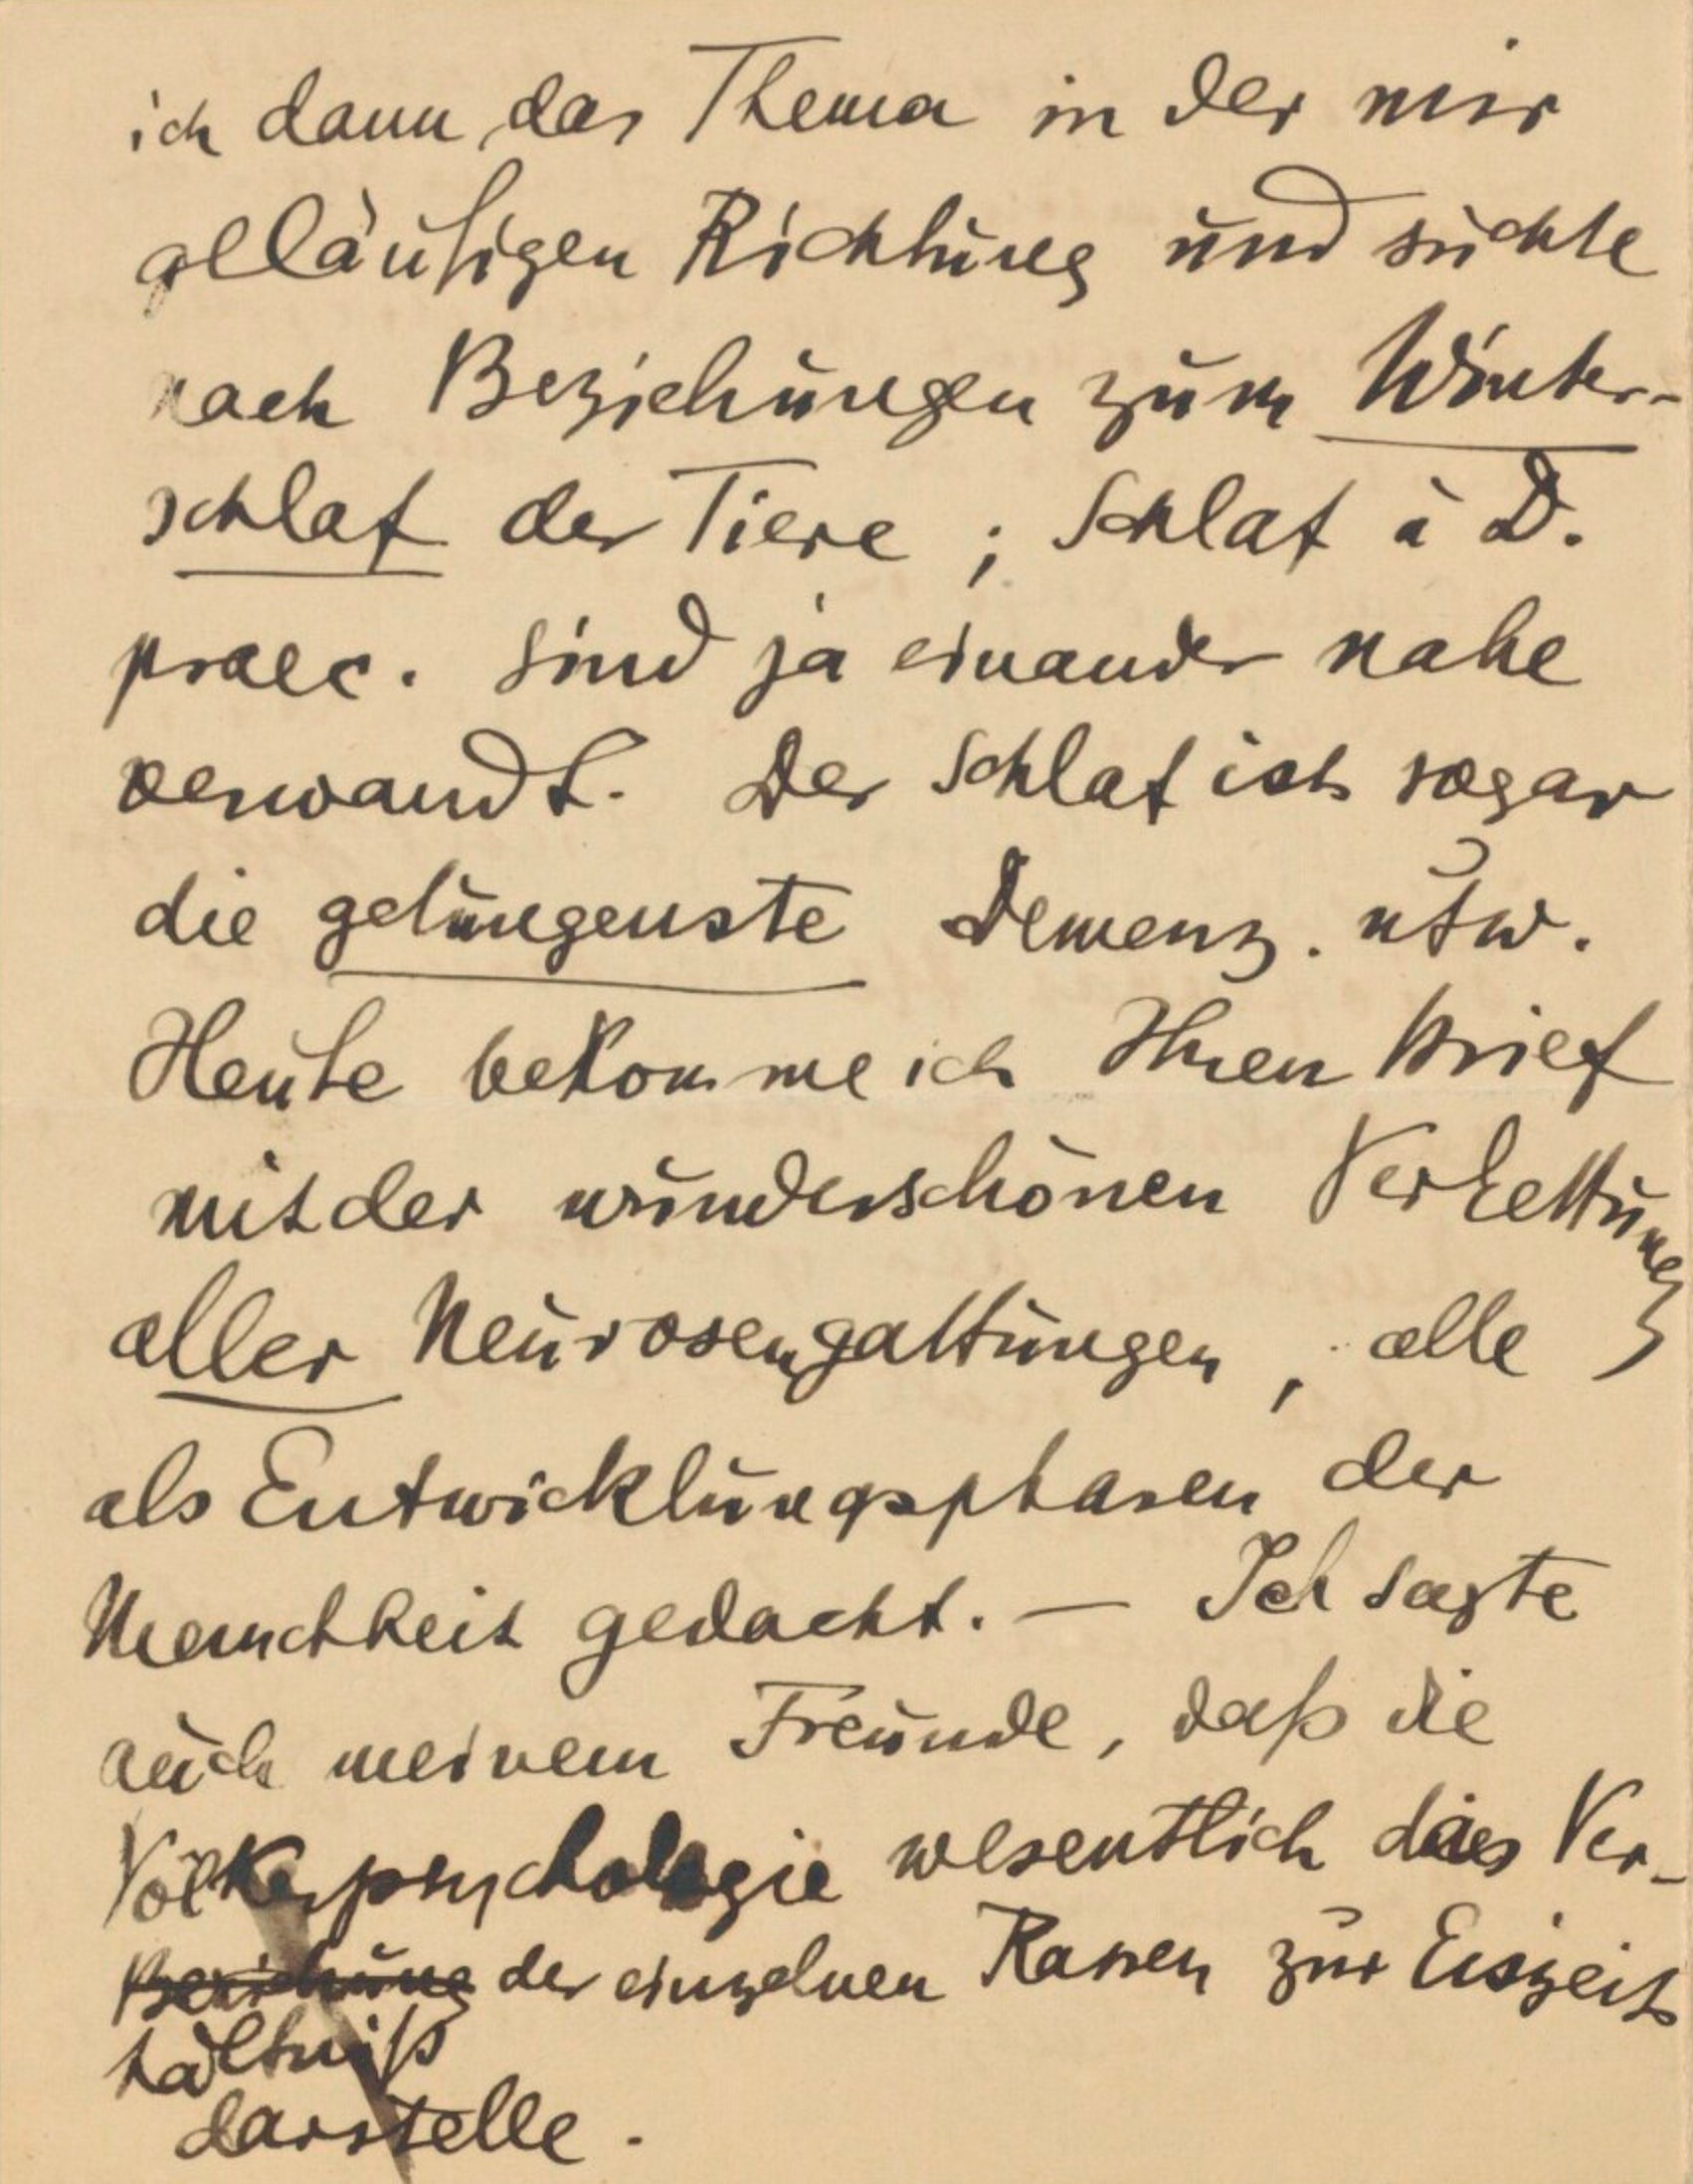 ich dann das Thema in der mir
geläufigen Richtung und suchte
nach Beziehungen zum Winter-
schlaf der Tiere; Schlaf u D.
praec. sind ja einander nahe
verwandt. Der Schlaf ist sogar
die gelungenste Demenz. usw.
Heute bekomme ich Ihren Brief
mit der wunderschönen Verkettung
aller Neurosengattungen, alle
als Entwicklungsphasen der
Menschheit gedacht. — Ich sagte
auch meinem Freunde, daß die
Völkerpsychologie wesentlich das Ver-
Beziehung der einzelnen Rassen zur Eiszeit
hältniß
darstelle.